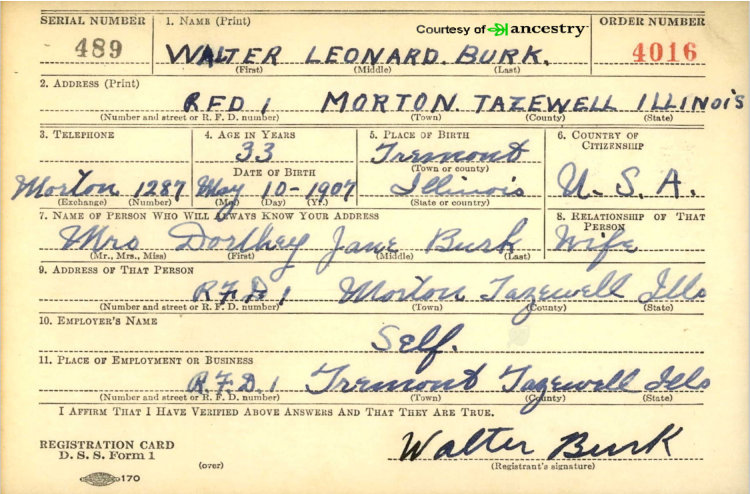 Courtesy of ancestry
SERIAL NUMBER 1. NAME (Print) ORDER NUMBER
489 WALTER LEONARD. BURK. 4016
(First) (Middle) (Last)
2. ADDRESS (Print)
RFD 1 MORTON. TAZEWELL ILLINOIS
(Number and street or R. F. D. number) (Town) (County) (State)
3. TELEPHONE 4. AGE IN YEARS 5. PLACE OF BIRTH 6. COUNTRY OF CITIZENSHIP
33 Tremont
DATE OF BIRTH (Town or county)
Morton 1287 May 10-1907 Illinois U. S. A.
(Exchange) (Number) (Mo.) (Day) (Yr.) (State or country)
7. NAME OF PERSON WHO WILL ALWAYS KNOW YOUR ADDRESS 8. RELATIONSHIP OF THAT PERSON
Mrs Dorthey Jane Burk Wife
(Mr., Mrs., Miss) (First) (Middle) (Last)
9. ADDRESS OF THAT PERSON
R.F.D. 1 Morton Tazewell Ills
(Number and street or R. F. D. number) (Town) (County) (State)
10. EMPLOYER'S NAME
Self.
11. PLACE OF EMPLOYMENT OR BUSINESS
R.F.D. 1 Tremont Tazewell Ills
(Number and street or R. F. D. number) (Town) (County) (State)
I AFFIRM THAT I HAVE VERIFIED ABOVE ANSWERS AND THAT THEY ARE TRUE.
REGISTRATION CARD
D. S. S. Form 1 Walter Burk
(over) (Registrant's signature)
170